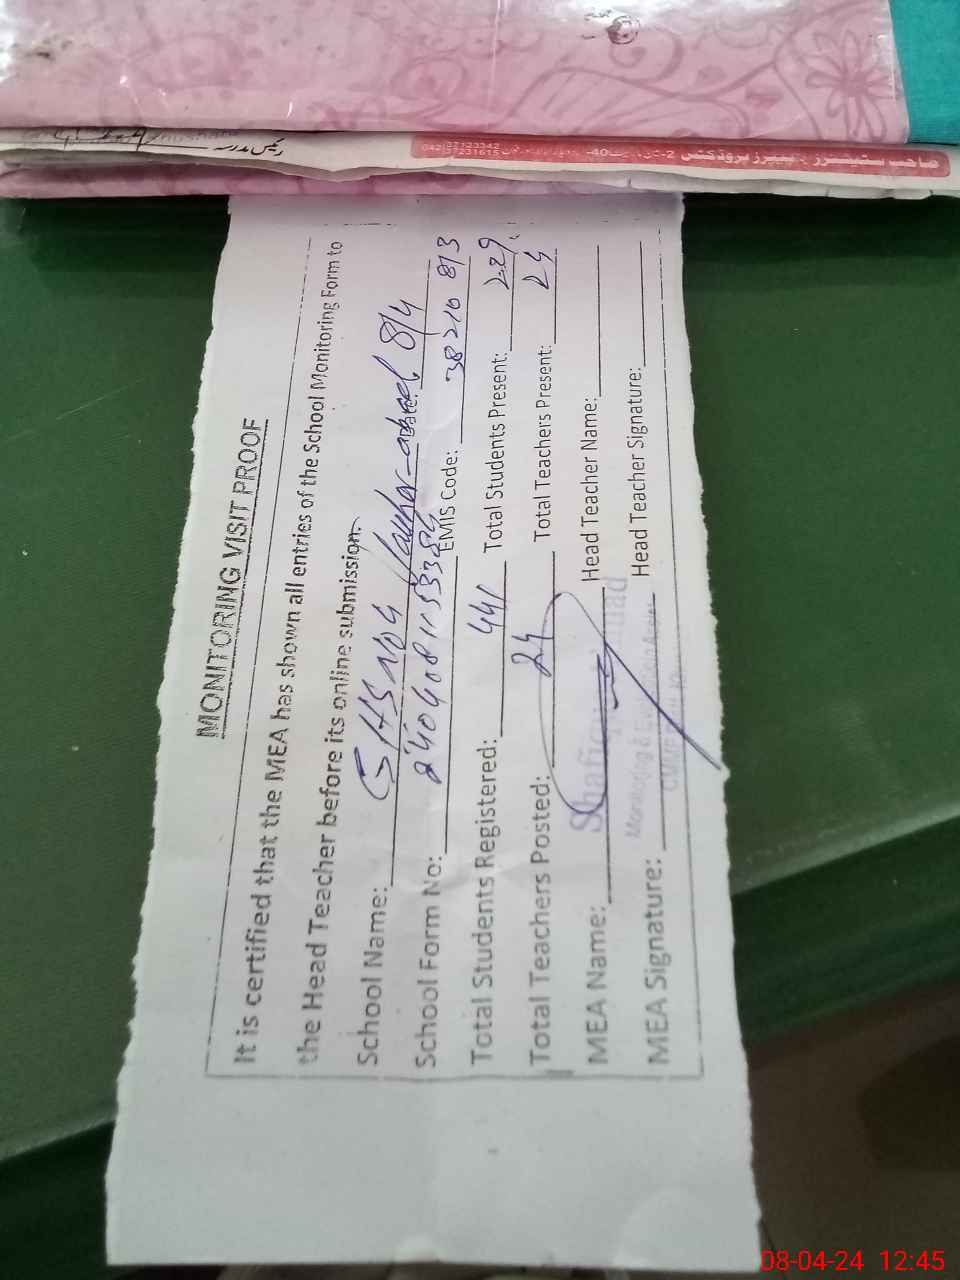 رئیس مدرسہ
MONITORING VISIT PROOF
It is certified that the MEA has shown all entries of the School Monitoring Form to
the Head Teacher before its online submission.
School Name: GHS No 4 Date: 8/4
School Form No: EMIS Code: 38210 813
Total Students Registered: 441 Total Students Present: 229
Total Teachers Posted: 24 Total Teachers Present: 24
MEA Name: Head Teacher Name:
MEA Signature: Head Teacher Signature:
Monitoring & Evaluation
08-04-24 12:45